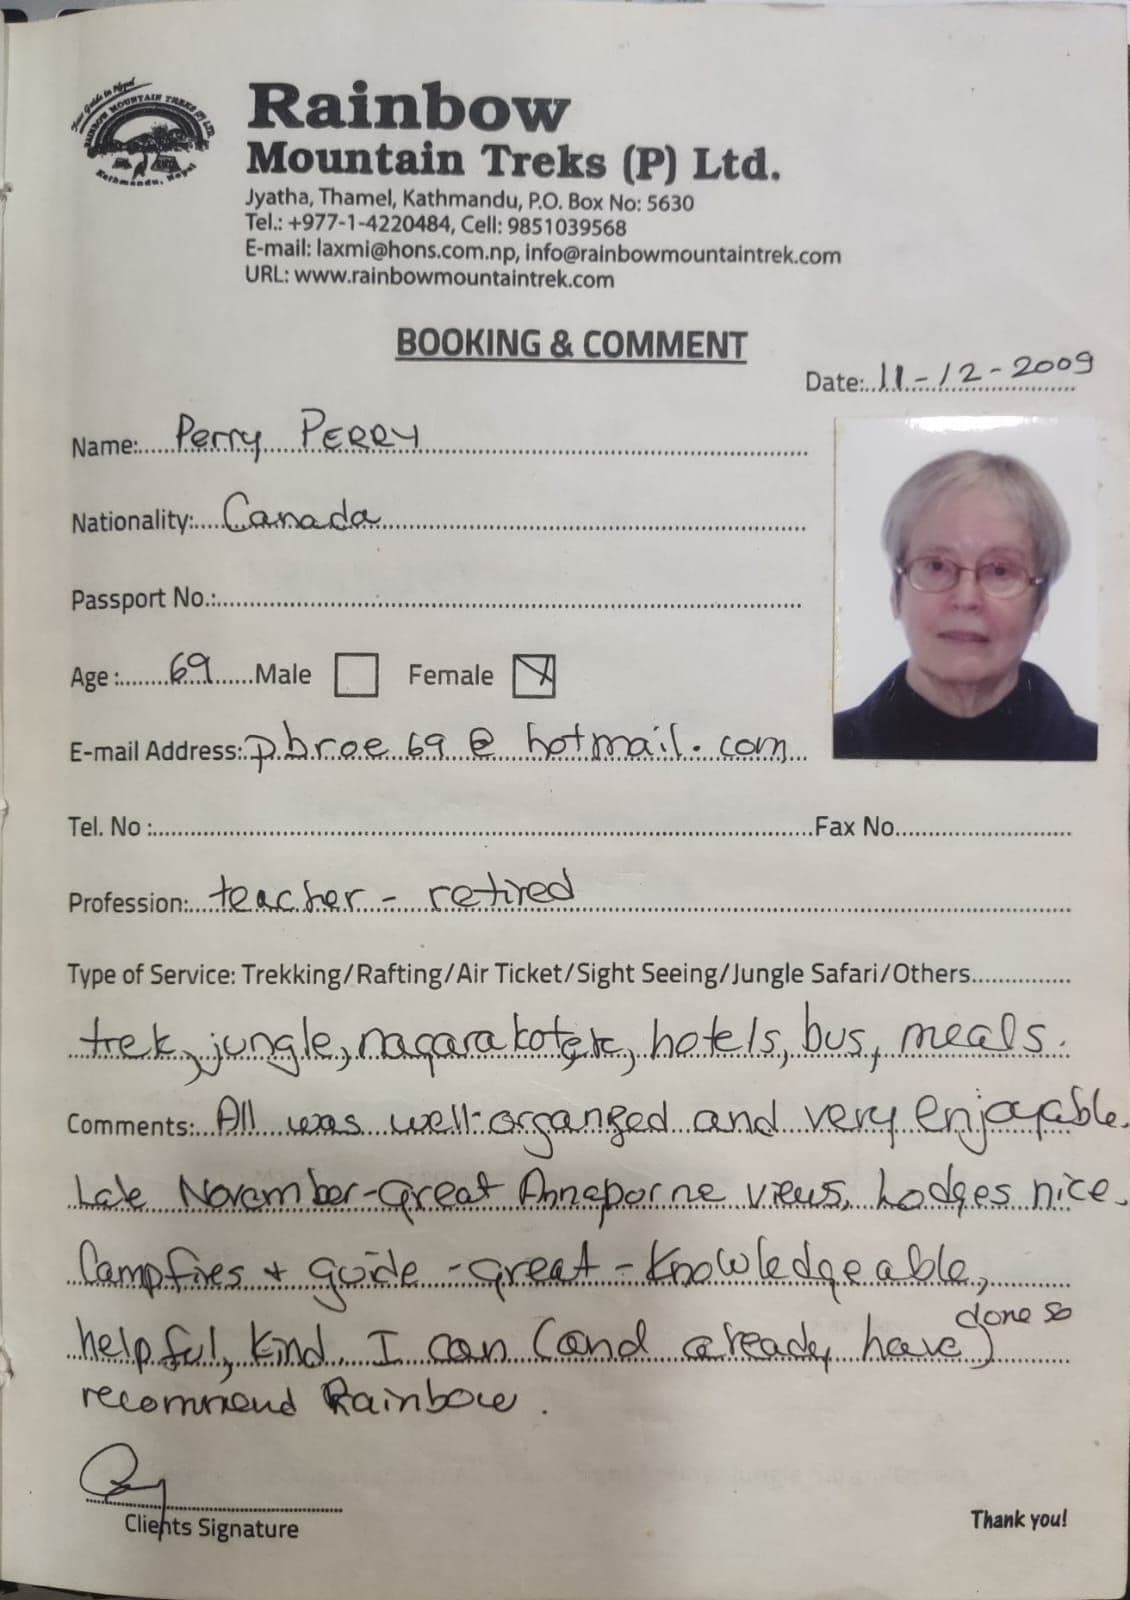 Your Guide to Nepal
RAINBOW MOUNTAIN TREKS (P) LTD.
Kathmandu, Nepal
Rainbow
Mountain Treks (P) Ltd.
Jyatha, Thamel, Kathmandu, P.O. Box No: 5630
Tel.: +977-1-4220484, Cell: 9851039568
E-mail: laxmi@hons.com.np, info@rainbowmountaintrek.com
URL: www.rainbowmountaintrek.com
BOOKING & COMMENT
Date: 11-12-2009
Name: Perry PERRY
Nationality: Canada
Passport No.:
Age: 69 Male Female
E-mail Address: pbroe69@hotmail.com
Tel. No: Fax No.
Profession: teacher - retired
Type of Service: Trekking/Rafting/Air Ticket/Sight Seeing/Jungle Safari/Others
trek, jungle, nagarakot, hotels, bus, meals.
Comments: All was well-organged and very enjoyable.
Late November-great Annaporne views, Lodges nice.
Campfires + guide - great - knowledgeable,
helpful, kind. I can (and already have done so)
recommend Rainbow.
Clients Signature
Thank you!